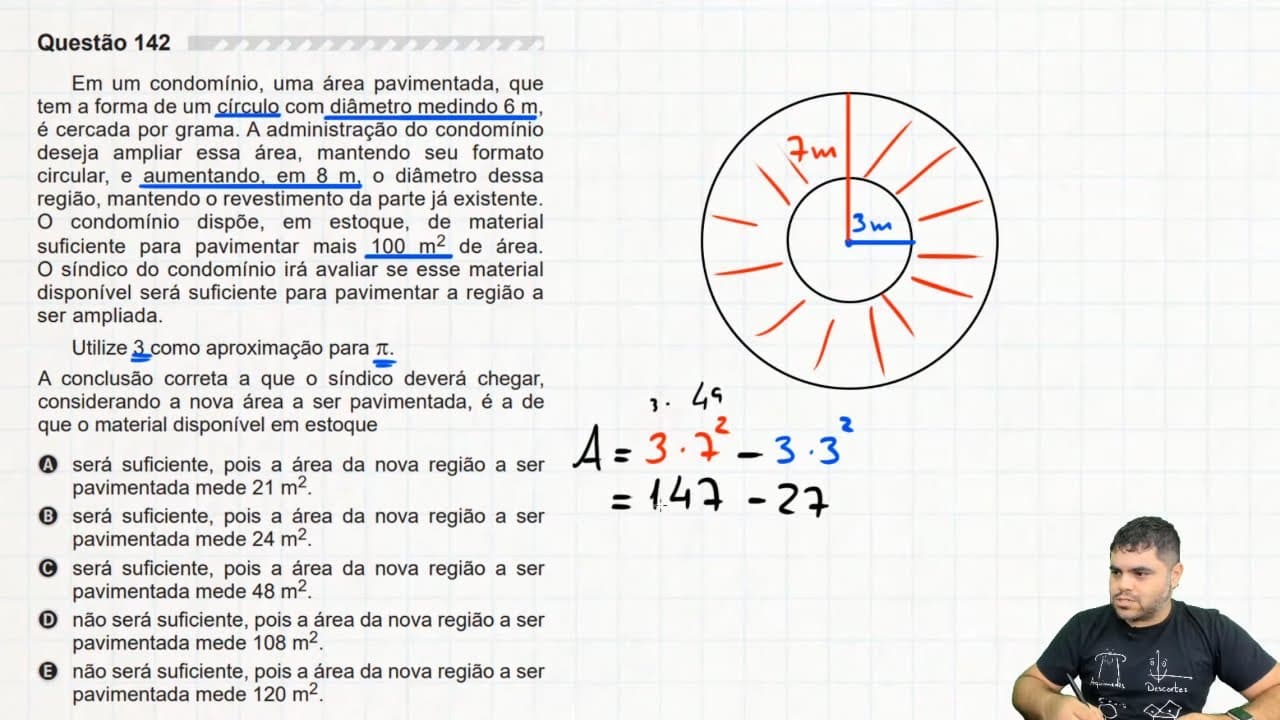 Questão 142
Em um condomínio, uma área pavimentada, que
tem a forma de um círculo com diâmetro medindo 6 m,
é cercada por grama. A administração do condomínio
deseja ampliar essa área, mantendo seu formato
circular, e aumentando, em 8 m, o diâmetro dessa
região, mantendo o revestimento da parte já existente.
O condomínio dispõe, em estoque, de material
suficiente para pavimentar mais 100 m² de área.
O síndico do condomínio irá avaliar se esse material
disponível será suficiente para pavimentar a região a
ser ampliada.
Utilize 3 como aproximação para π.
A conclusão correta a que o síndico deverá chegar,
considerando a nova área a ser pavimentada, é a de
que o material disponível em estoque
A será suficiente, pois a área da nova região a ser
pavimentada mede 21 m².
B será suficiente, pois a área da nova região a ser
pavimentada mede 24 m².
C será suficiente, pois a área da nova região a ser
pavimentada mede 48 m².
D não será suficiente, pois a área da nova região a ser
pavimentada mede 108 m².
E não será suficiente, pois a área da nova região a ser
pavimentada mede 120 m².
7m
3m
3. 49
A = 3·7² - 3·3²
= 147 - 27
Arquimedes
Descartes